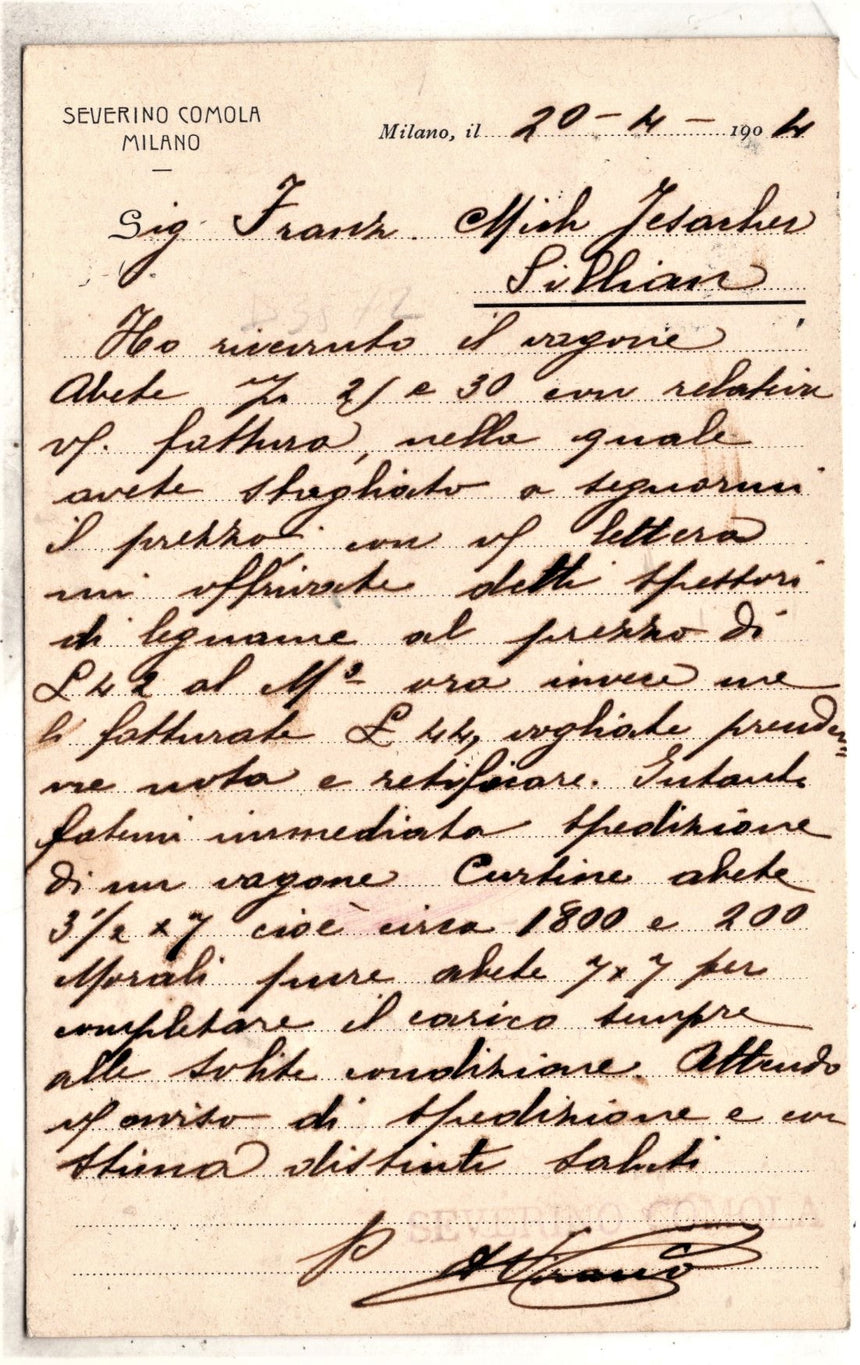 SEVERINO COMOLA
MILANO
Milano, il 20-4-1904
Sig Franz Mich Jesacher
Sillian
Ho ricevuto il vagone
Abete 25 e 30 con relativa
vs. fattura, nella quale
avete sbagliato a segnarmi
il prezzo; con vs lettera
mi offrivate detti spessori
di legname al prezzo di
£ 42 al M³ ora invece me
li fatturate £ 44, vogliate prender=
ne nota e retificare. Intanto
fatemi immediata spedizione
di un vagone Curtine abete
3 1/2 x 7 cioè circa 1800 e 200
Morali pure abete 7x7 per
completare il carico sempre
alle solite condizione. Attendo
vs avviso di spedizione e con
stima distinti saluti
SEVERINO COMOLA
P